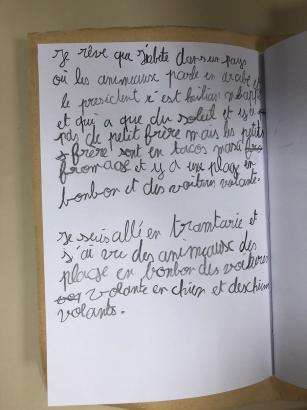 Je rêve que j'abite dans un pays
où les animeause parle en arabe et
le president c'est kilian mbappe
et qui a que du soleil et y a
pas de petit frère mais les petits
frère sont en tacos maxi
fromage et y a une plage en
bonbon et des voitures volante.
Je suis allé en tramtarie et
j'ai vu des animeause des
plage en bonbon des voitures
volante en chien et des chiens
volants.